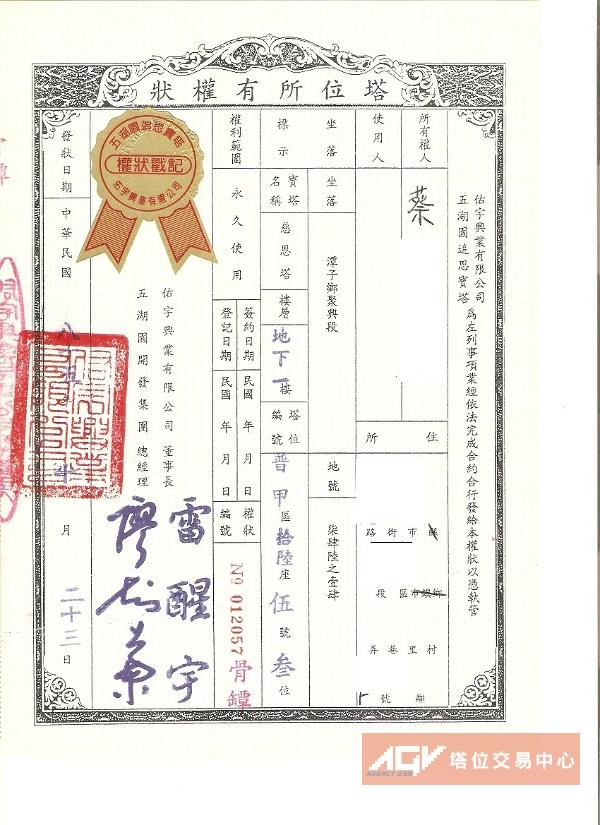 塔位所有權狀
佑宇興業有限公司
五湖園追思寶塔
為左列事項業經依法完成合約合行發給本權狀以憑執管
所有權人
蔡
使用人
住所
縣市 鄉鎮市區 村里 鄰
路街 段 巷弄 號
坐落
坐落
潭子鄉聚興段
地號
柒肆陸之壹肆
標示
寶塔名稱
慈恩塔
樓層
地下一樓
塔位編號
普甲區拾陸座伍號叁位
權利範圍
永久使用
簽約日期
民國 年 月 日
登記日期
民國 年 月 日
權狀編號
Nº 012057
骨罈
佑宇興業有限公司 董事長
雷醒宇
五湖園開發集團 總經理
五湖園追思寶塔
權狀戳記
佑宇興業有限公司
發狀日期
中華民國
八
月
二十三
日
AGV
AGENCY 339
塔位交易中心